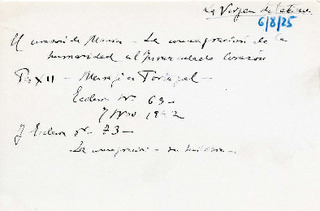 La Virgen de
6/8/25
El corazón de María - La consagración de la
humanidad al Inmaculado Corazón
Pío XII - Mensaje a Portugal -
Ecclesia Nº 69 -
7 Nov 1942
y Ecclesia nº 73 -
La consagración - su historia -